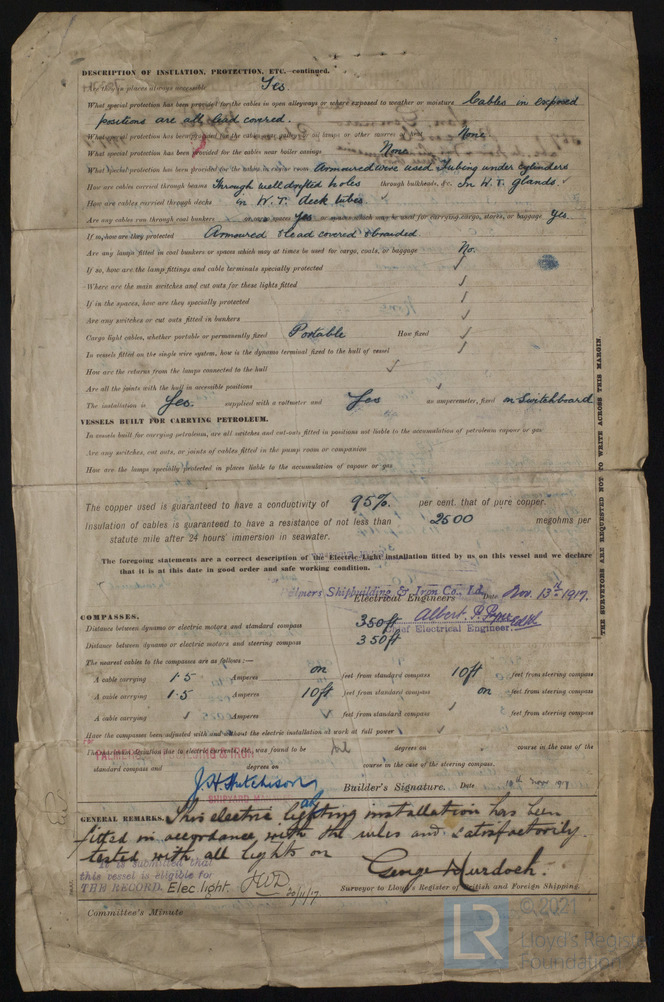 DESCRIPTION OF INSULATION, PROTECTION, ETC.—continued.
Are they in places always accessible Yes.
What special protection has been provided for the cables in open alleyways or where exposed to weather or moisture Cables in exposed
positions are all lead covered.
What special protection has been provided for the cables near galleys or oil lamps or other sources of heat None
What special protection has been provided for the cables near boiler casings None
What special protection has been provided for the cables in engine room Armoured wire used Tubing under cylinders
How are cables carried through beams Through well drafted holes through bulkheads, &c. In W.T. Glands ✓
How are cables carried through decks in W.T. deck tubes ✓
Are any cables run through coal bunkers or cargo spaces Yes or spaces which may be used for carrying cargo, stores, or baggage Yes.
If so, how are they protected Armoured & Lead covered & braided
Are any lamps fitted in coal bunkers or spaces which may at times be used for cargo, coals, or baggage No.
If so, how are the lamp fittings and cable terminals specially protected ✓
Where are the main switches and cut outs for these lights fitted ✓
If in the spaces, how are they specially protected ✓
Are any switches or cut outs fitted in bunkers ✓
Cargo light cables, whether portable or permanently fixed Portable How fixed ✓
In vessels fitted on the single wire system, how is the dynamo terminal fixed to the hull of vessel ✓
How are the returns from the lamps connected to the hull ✓
Are all the joints with the hull in accessible positions ✓
The installation is Yes. supplied with a voltmeter and Yes an amperemeter, fixed on Switchboard
VESSELS BUILT FOR CARRYING PETROLEUM.
In vessels built for carrying petroleum, are all switches and cut-outs fitted in positions not liable to the accumulation of petroleum vapour or gas
Are any switches, cut outs, or joints of cables fitted in the pump room or companion
How are the lamps specially protected in places liable to the accumulation of vapour or gas
The copper used is guaranteed to have a conductivity of 95%. per cent. that of pure copper.
Insulation of cables is guaranteed to have a resistance of not less than 2500 megohms per
statute mile after 24 hours' immersion in seawater.
The foregoing statements are a correct description of the Electric Light installation fitted by us on this vessel and we declare
that it is at this date in good order and safe working condition.
Palmers Shipbuilding & Iron Co., Ld.
Electrical Engineers Date Nov. 13th 1917.
COMPASSES.
Distance between dynamo or electric motors and standard compass 350 ft
Chief Electrical Engineer.
Distance between dynamo or electric motors and steering compass 350 ft
The nearest cables to the compasses are as follows:—
A cable carrying 1.5 Amperes on feet from standard compass 10 ft feet from steering compass
A cable carrying 1.5 Amperes 10 ft feet from standard compass on feet from steering compass
A cable carrying ✓ Amperes ✓ feet from standard compass ✓ feet from steering compass
Have the compasses been adjusted with and without the electric installation at work at full power ✓
The maximum deviation due to electric currents, etc. was found to be Nil degrees on course in the case of the
standard compass and degrees on course in the case of the steering compass.
J.H. Hutchison Builder's Signature. Date 14th Nov. 1917
GENERAL REMARKS. This electric lighting installation has been
fitted in accordance with the rules and satisfactorily
tested with all lights on
It is submitted that
this vessel is eligible for
THE RECORD. Elec. light. 20/11/17
George Murdoch.
Surveyor to Lloyd's Register of British and Foreign Shipping.
Committee's Minute
THE SURVEYORS ARE REQUESTED NOT TO WRITE ACROSS THIS MARGIN.
© 2021
LR
Lloyd's Register
Foundation